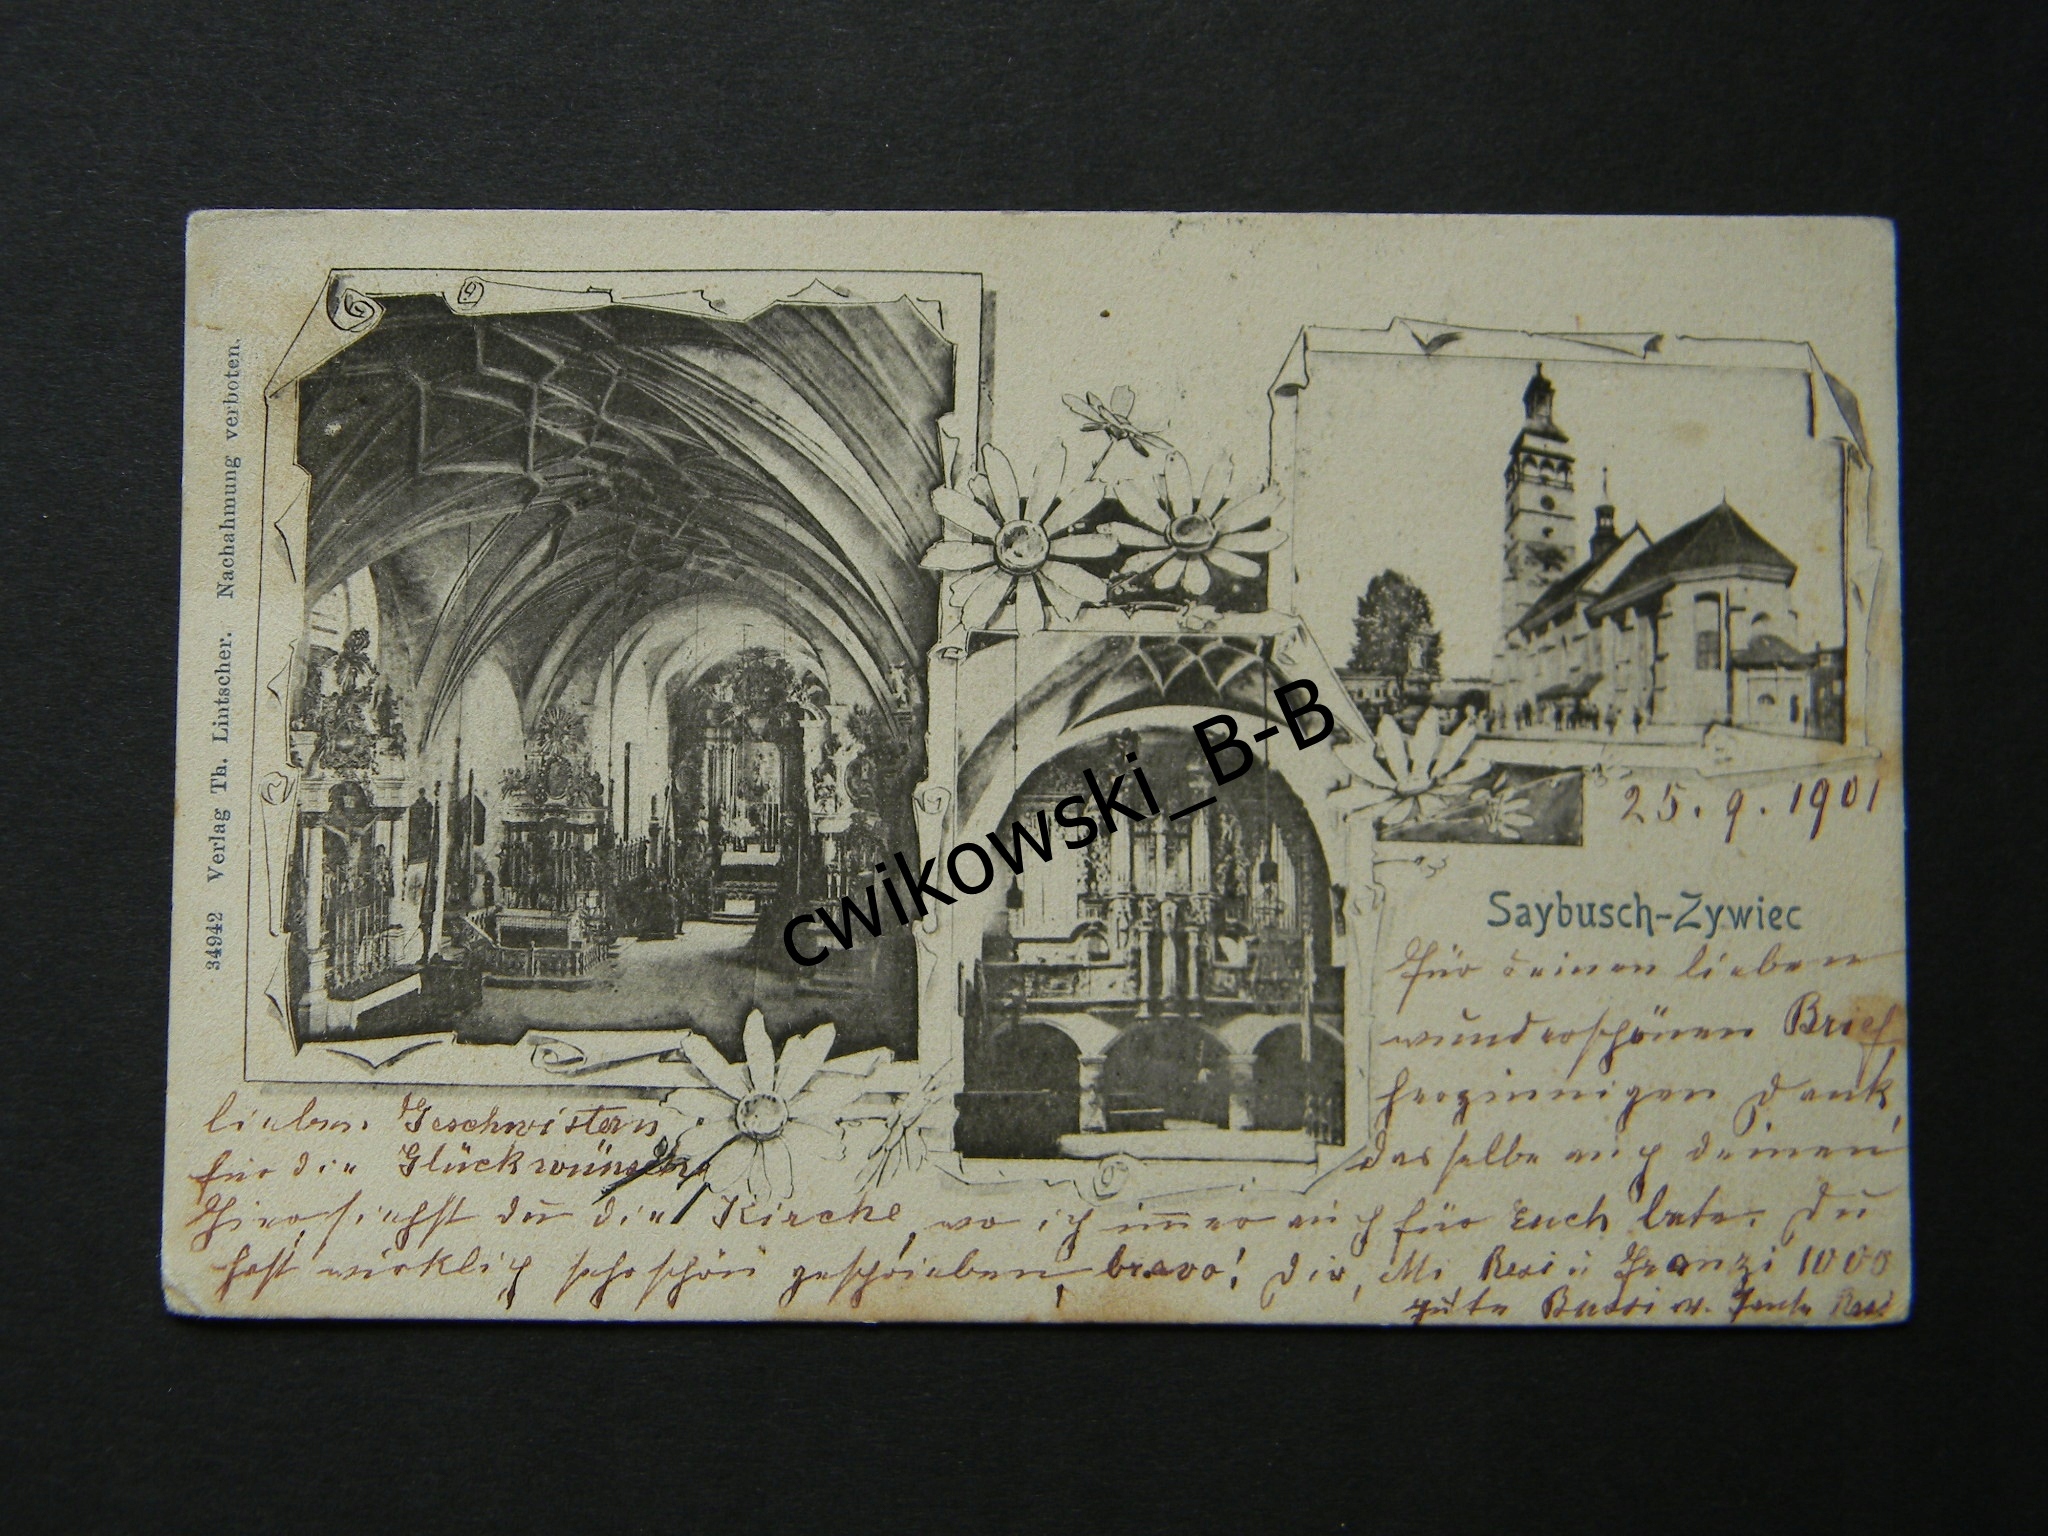 34942 Verlag Th. Lintscher. Nachahmung verboten.
cwikowski_B-B
25. 9. 1901
Saybusch-Zywiec
Für deinen lieben
wunderschönen Brief
herzinnigen Dank,
dasselbe auch deinen
lieben Geschwistern
für die Glückwünsche
Hier siehst du die Kirche, wo ich immer auch für Euch bete. Du
hast wirklich sehr schön geschrieben, bravo! Dir, Mi Resi u Franzi 1000
gute Bussi v. Tante Resi